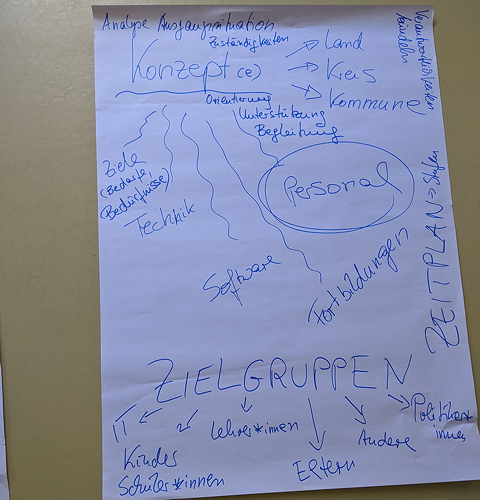 Analyse Ausgangssituation
Zuständigkeiten
Konzept (e)
Land
Kreis
Kommune
Verantwortlichkeiten
bündeln
Orientierung
Unterstützung
Begleitung
Ziele
(Bedarfe,
Bedürfnisse)
Technik
Personal
Software
Fortbildungen
ZEITPLAN → Stufen
ZIELGRUPPEN
IT
Kinder
Schüler*innen
Lehrer*innen
Eltern
Andere
Politiker*
innen